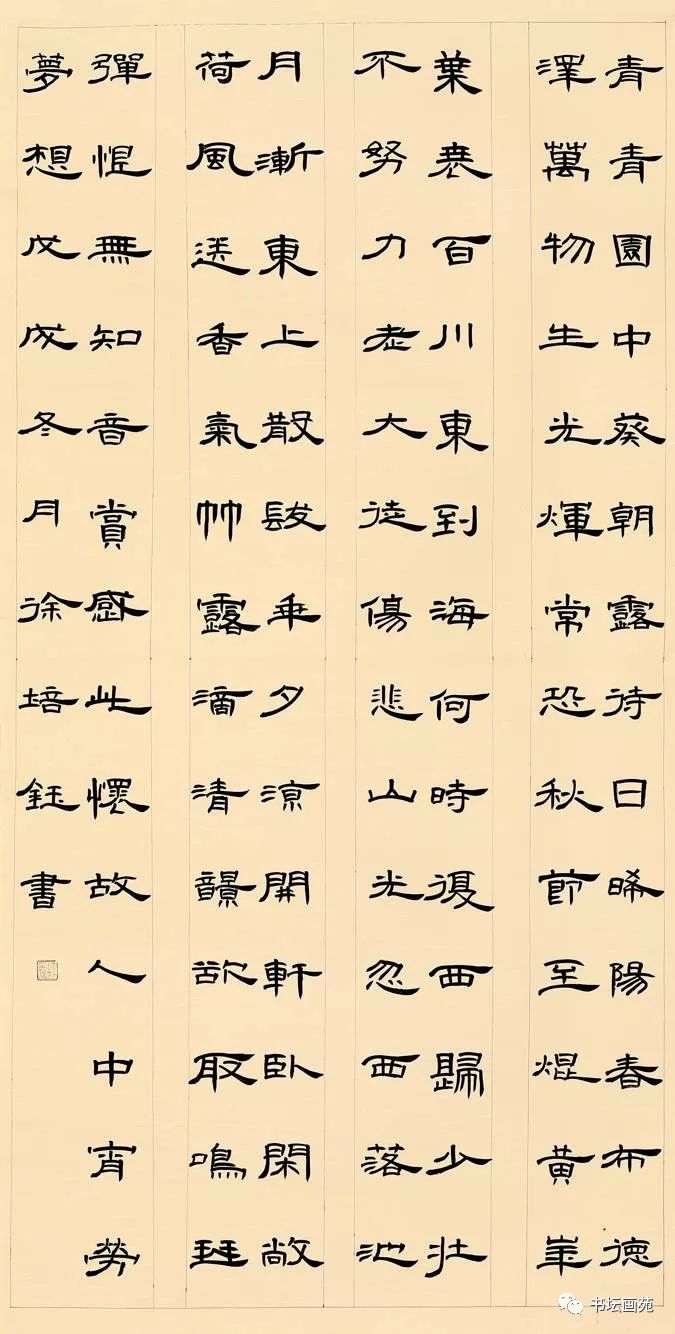 青青園中葵朝露待日晞陽春布德
澤萬物生光煇常恐秋節至焜黃華
葉衰百川東到海何時復西歸少壯
不努力老大徒傷悲山光忽西落池
月漸東上散髮乘夕涼開軒臥閑敞
荷風送香氣竹露滴清韻欲取鳴琴
彈恨無知音賞感此懷故人中宵勞
夢想戊戌冬月徐培鈺書
书坛画苑